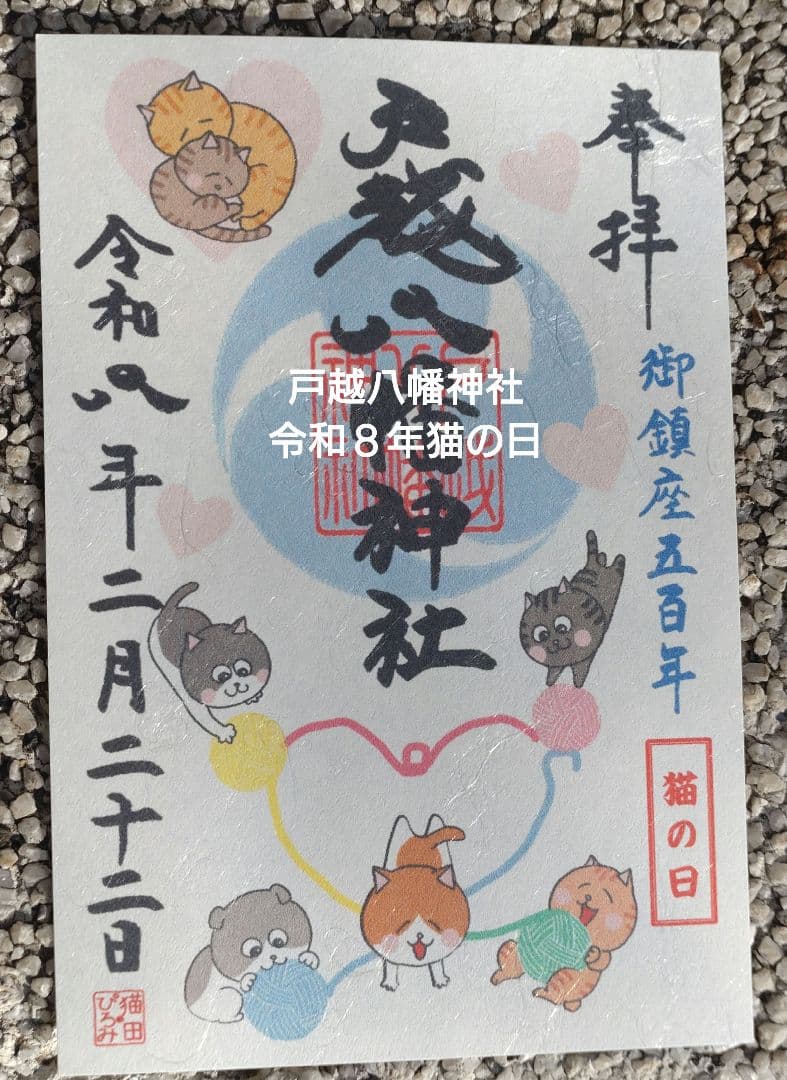 奉拝
御鎮座五百年
猫の日
戸越八幡神社
戸越八幡神社
令和８年猫の日
令和八年二月二十二日
猫田
ぴろみ